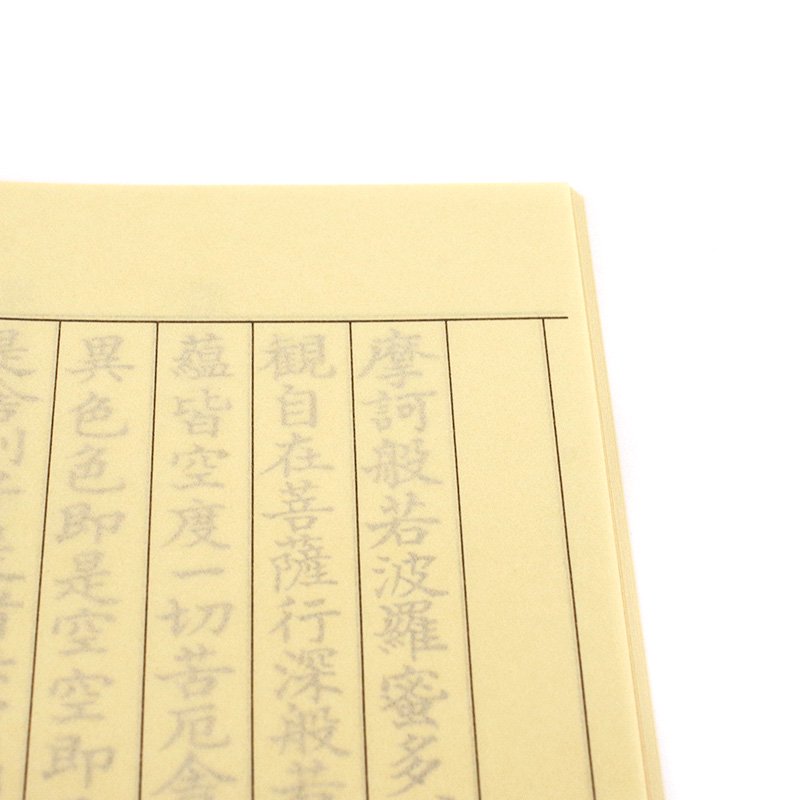 摩訶般若波羅蜜多
観自在菩薩行深般若
蘊皆空度一切苦厄舎
異色色即是空空即
是舎利子是諸